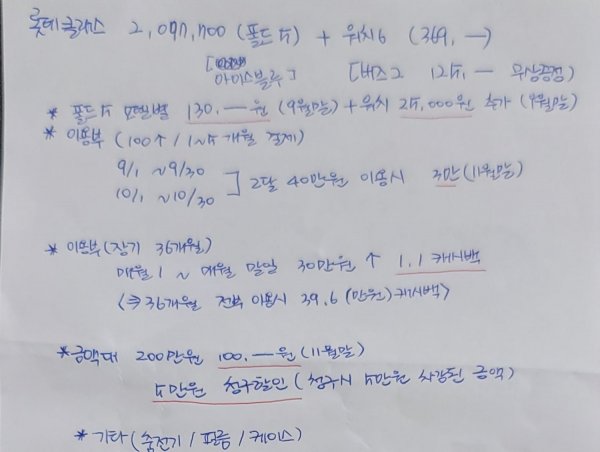 롯데클래스 2,097,700 (폴드5) + 워치6 (369,—)
[아이스블루] [버즈2 125,— 무상증정)
* 폴드5 모델별 130.—원 (9월말) + 워치 25,000원 추가 (9월말)
* 이용부 (100↑ / 1~5개월 결제)
9/1 ~ 9/30
10/1 ~ 10/30
] 2달 40만원 이용시 3만 (11월말)
* 이용부 (장기 36개월)
매월 1 ~ 매월 말일 30만원 ↑ 1.1 캐시백
<⇒ 36개월 전부 이용시 39.6 (만원) 캐시백>
* 금액대 200만원 100.—원 (11월말)
5만원 청구할인 (청구시 5만원 차감된 금액)
* 기타 (충전기 / 필름 / 케이스)